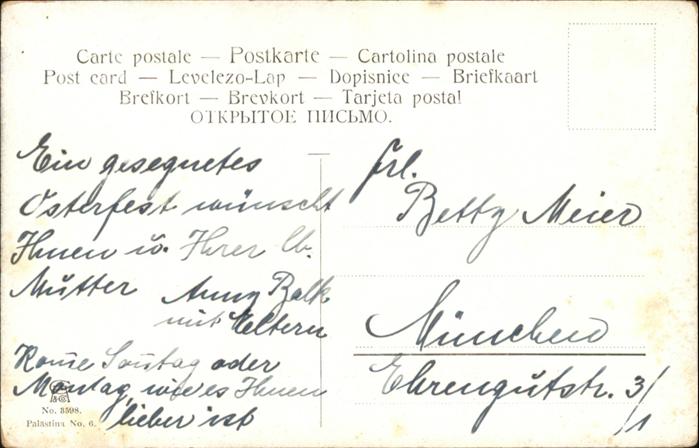 Carte postale — Postkarte — Cartolina postale
Post card — Levelezo-Lap — Dopisnice — Briefkaart
Brefkort — Brevkort — Tarjeta postal
ОТКРЫТОЕ ПИСЬМО.
Ein gesegnetes
Osterfest wünscht
Ihnen u. Ihrer lb.
Mutter Anny Balk
mit Eltern
Kome Sontag oder
Montag, wie es Ihnen
lieber ist
No. 3598.
Palästina No. 6.
Frl.
Betty Meier
München
Ehrengutstr. 3/1